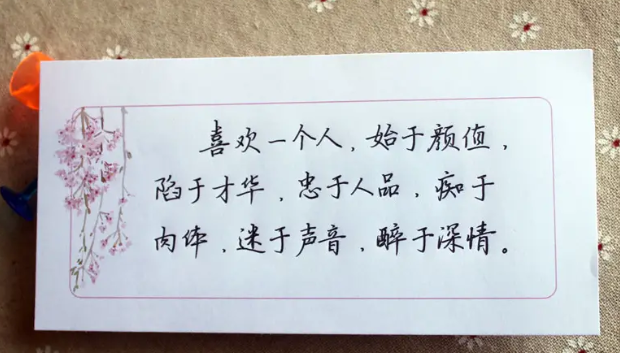 喜欢一个人,始于颜值,
陷于才华,忠于人品,痴于
肉体,迷于声音,醉于深情。